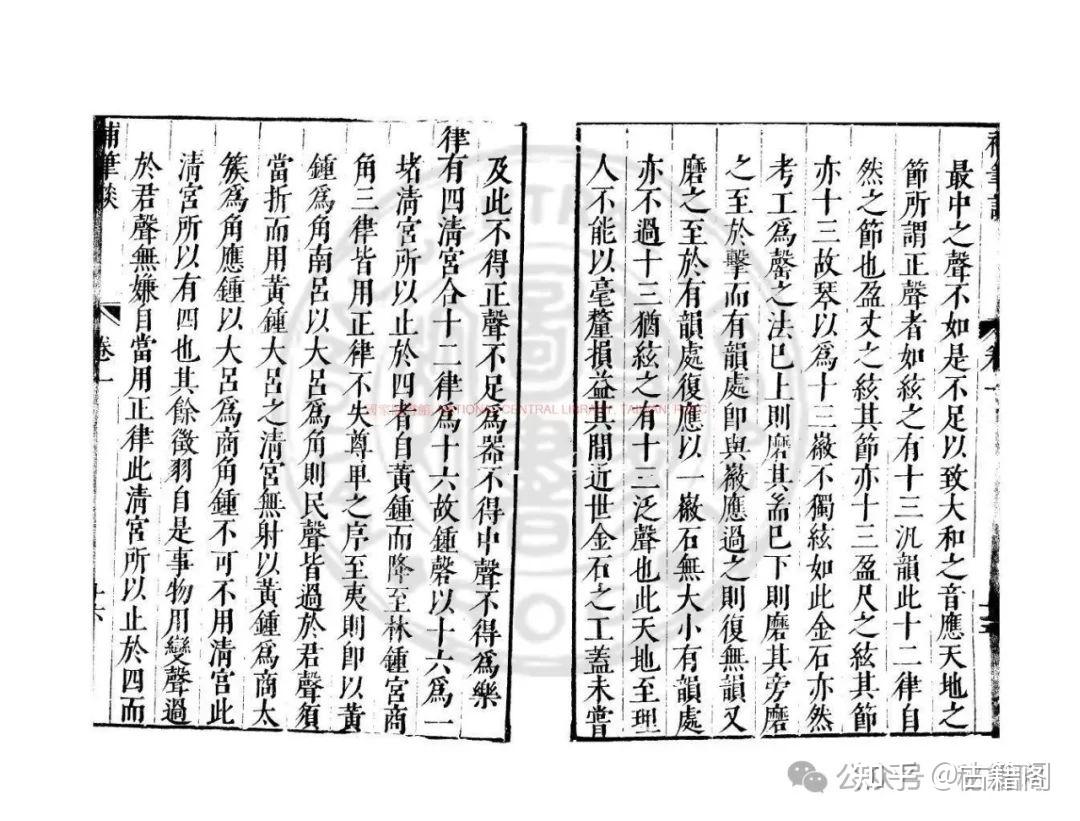 最中之聲不如是不足以致大和之音應天地之
節所謂正聲者如絃之有十三汎韻此十二律自
然之節也盈丈之絃其節亦十三盈尺之絃其節
亦十三故琴以為十三徽不獨絃如此金石亦然
考工為磬之法已上則磨其耑已下則磨其旁磨
之至於擊而有韻處卽與徽應過之則復無韻又
磨之至於有韻處復應以一徽石無大小有韻處
亦不過十三猶絃之有十三泛聲也此天地至理
人不能以毫釐損益其間近世金石之工蓋未嘗
補筆談
卷一
十五
及此不得正聲不足為器不得中聲不得為樂
律有四清宮合十二律為十六故鍾磬以十六為一
堵清宮所以止於四者自黃鍾而降至林鍾宮商
角三律皆用正律不失尊卑之序至夷則卽以黃
鍾為角南呂以大呂為角則民聲皆過於君聲須
當折而用黃鍾大呂之清宮無射以黃鍾為商太
簇為角應鍾以大呂為商角鍾不可不用清宮此
清宮所以有四也其餘徵羽自是事物用變聲過
於君聲無嫌自當用正律此清宮所以止於四而
補筆談
卷一
十六
國家圖書館 NATIONAL CENTRAL LIBRARY, TAIWAN, R.O.C
知乎 @古籍阁